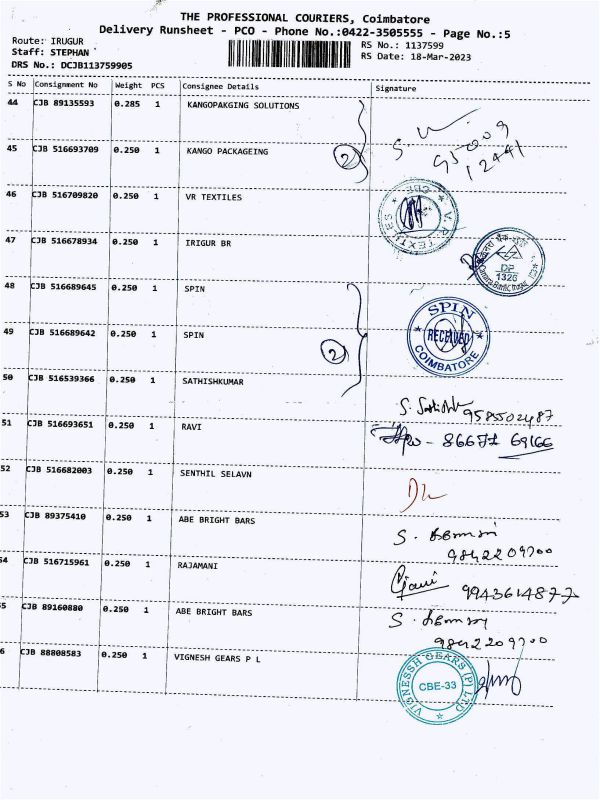 THE PROFESSIONAL COURIERS, Coimbatore
Delivery Runsheet - PCO - Phone No.:0422-3505555 - Page No.:5
Route: IRUGUR
Staff: STEPHAN
DRS No.: DCJB113759905
RS No.: 1137599
RS Date: 18-Mar-2023
S No Consignment No Weight PCS Consignee Details Signature
44 CJB 89135593 0.285 1 KANGOPAKGING SOLUTIONS
45 CJB 516693709 0.250 1 KANGO PACKAGEING
2
95009
12441
46 CJB 516709820 0.250 1 VR TEXTILES
V.R. TEXTILES ★ CBE ★
47 CJB 516678934 0.250 1 IRIGUR BR
DP
1326
48 CJB 516689645 0.250 1 SPIN
49 CJB 516689642 0.250 1 SPIN
2
SPIN
RECEIVED
COIMBATORE
50 CJB 516539366 0.250 1 SATHISHKUMAR
9585502487
51 CJB 516693651 0.250 1 RAVI
86671 69166
52 CJB 516682003 0.250 1 SENTHIL SELAVN
53 CJB 89375410 0.250 1 ABE BRIGHT BARS
9842209700
54 CJB 516715961 0.250 1 RAJAMANI
9943614877
55 CJB 89160880 0.250 1 ABE BRIGHT BARS
9842209700
6 CJB 88808583 0.250 1 VIGNESH GEARS P L
VIGNESSH GEARS (P) LTD
CBE-33